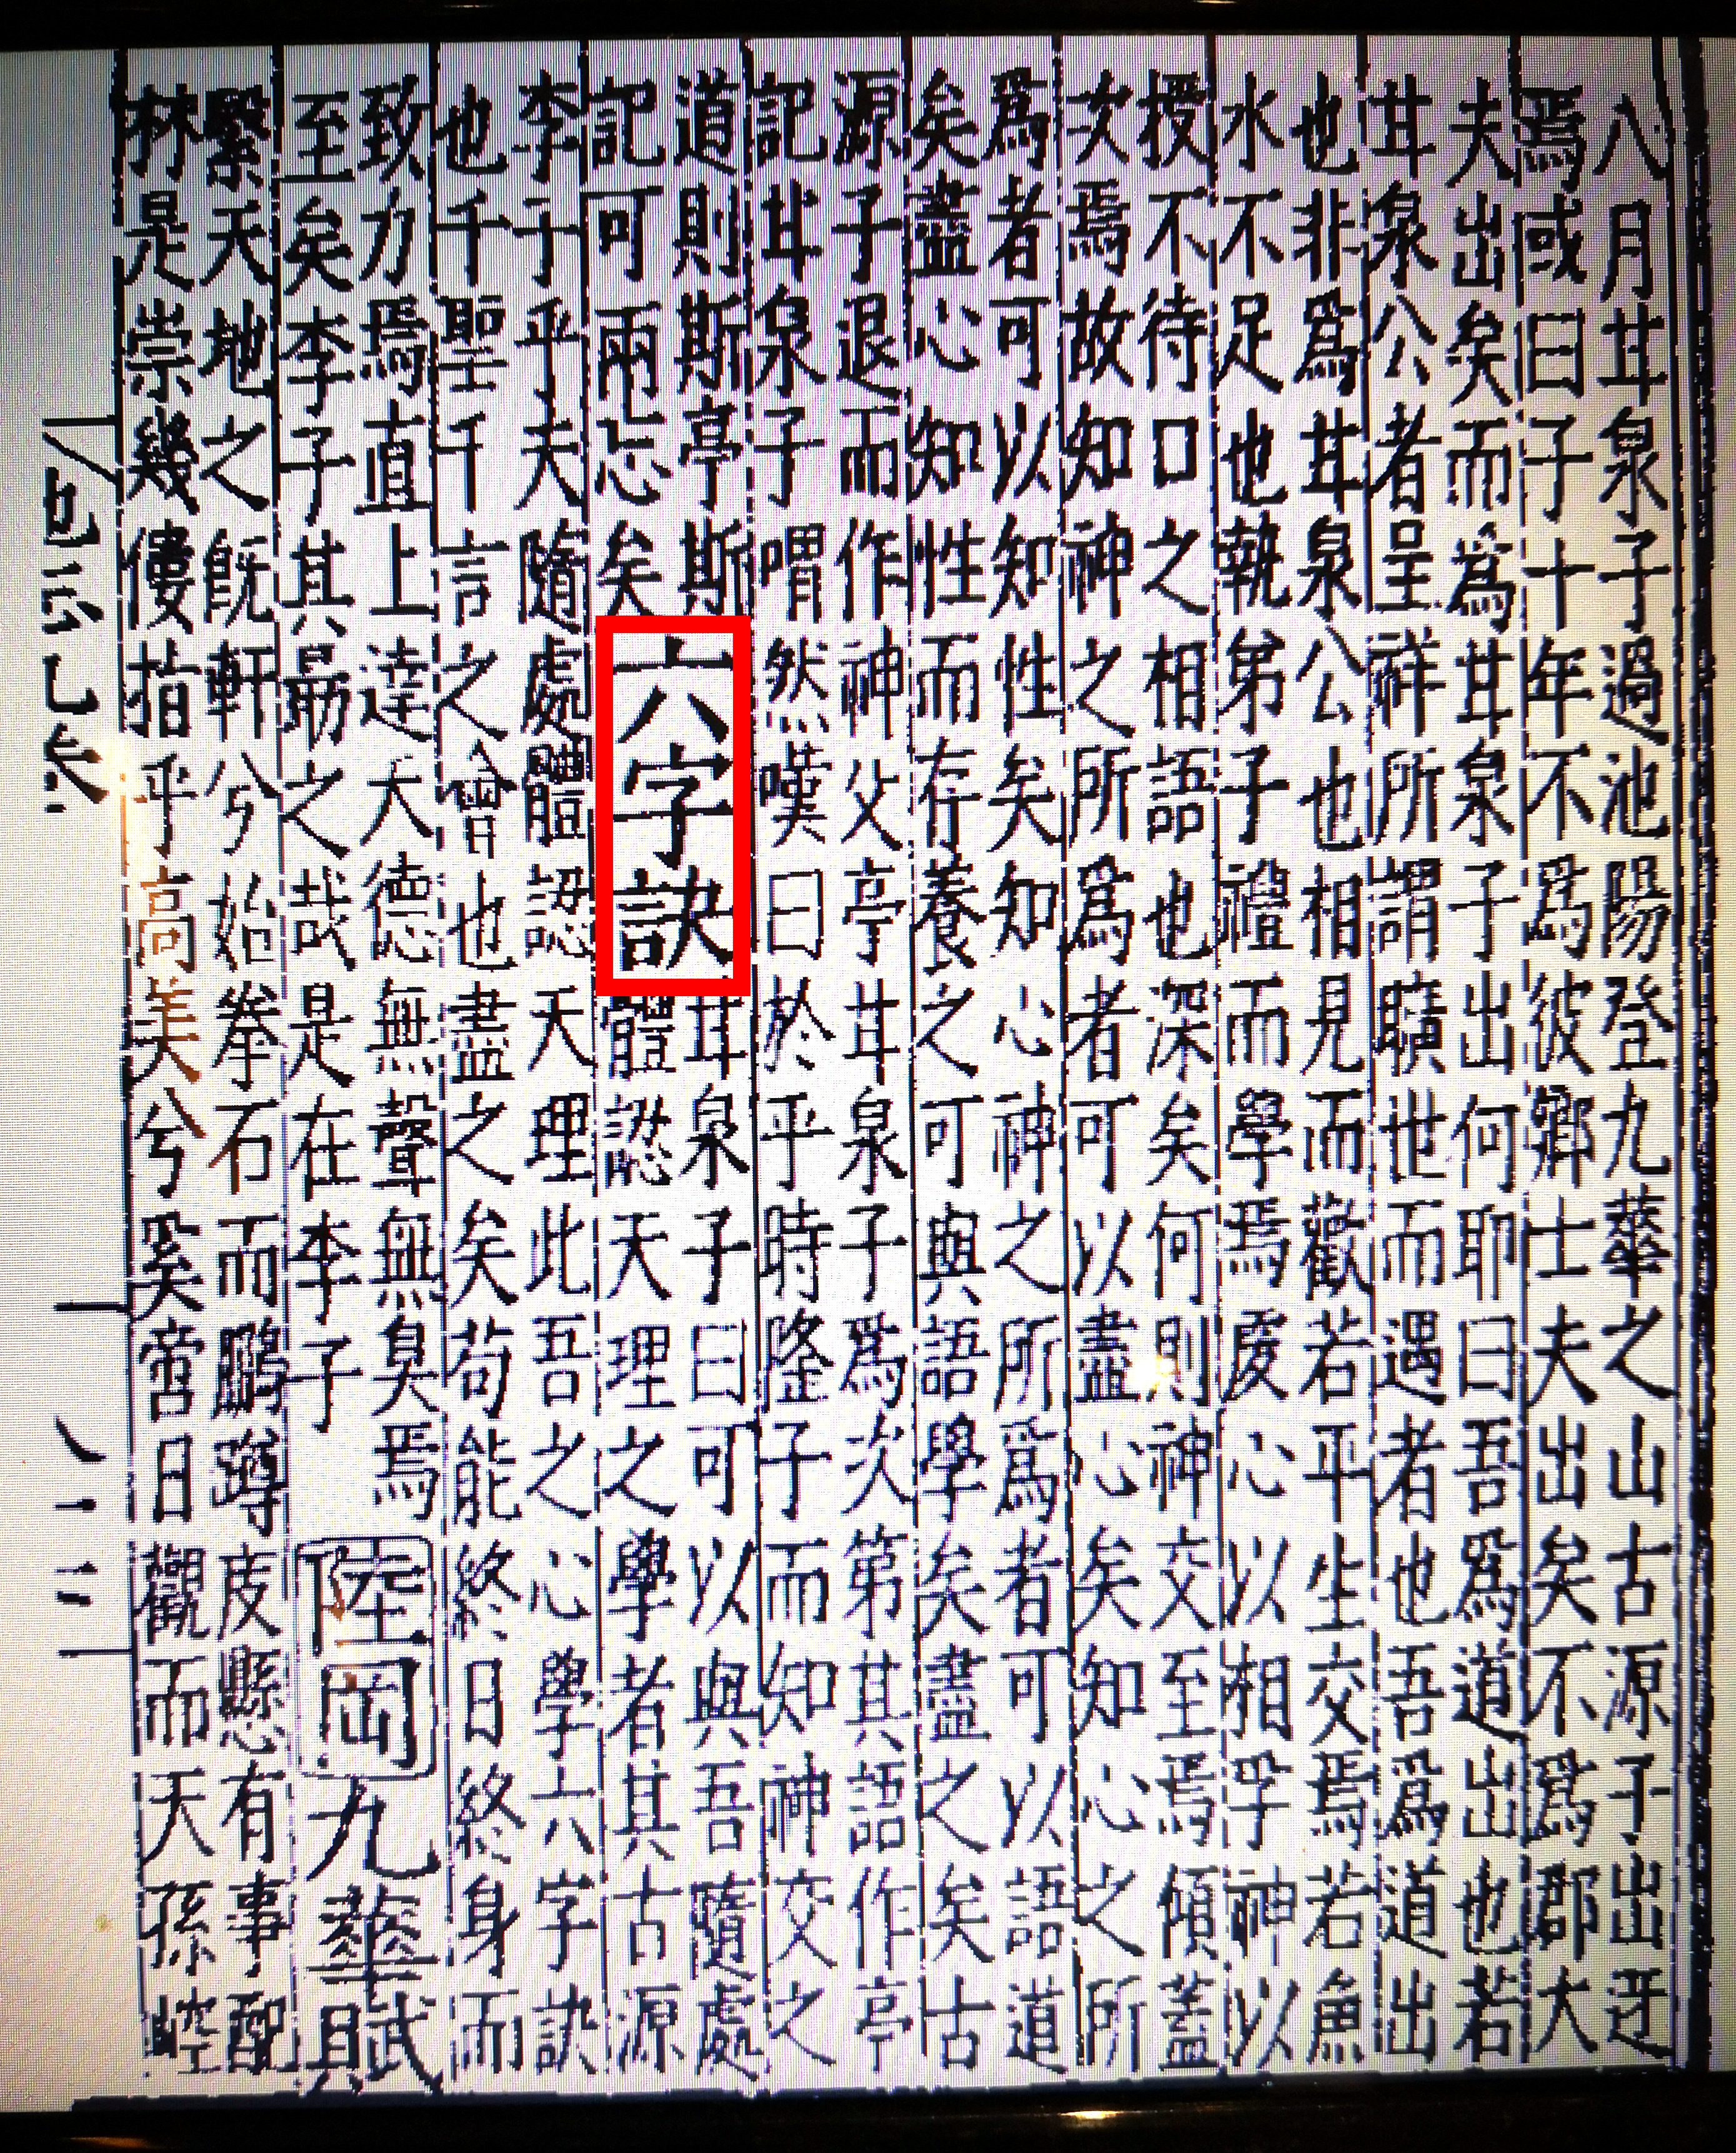 八月甘泉子過池陽登九華之山古源子出迓
焉或曰子十年不為彼鄉士夫出矣不為郡大
夫出矣而為甘泉子出何耶曰吾為道出也若
甘泉公者呈祥所謂曠世而遇者也吾為道出
也非為甘泉公也相見而歡若平生交焉若魚
水不足也執弟子禮而學焉心以相孚神以
授不待口之相語也深矣何則神交至焉傾蓋
次焉故知神之所為者可以盡心矣知心之所
為者可以知性矣知心神之所為者可以語道
矣盡心知性而存養之可與語學矣盡之矣古
源子退而作神交亭甘泉子為次第其語作亭
記甘泉子喟然嘆曰於乎時隆子而知神交之
道則斯亭斯
記可兩忘矣
六字訣
甘泉子曰可以與吾隨處
體認天理之學者其古源
李子乎夫隨處體認天理此吾之心學六字訣
也千聖千言之會也盡之矣苟能終日終身而
致力焉直上達天德無聲無臭焉
至矣李子其勗之哉是在李子
陸岡
九華賦
繄天地之既軒兮始拳石而鵬蹲懸有事配
林是崇幾僂指乎高美兮奚啻日觀而天孫崆